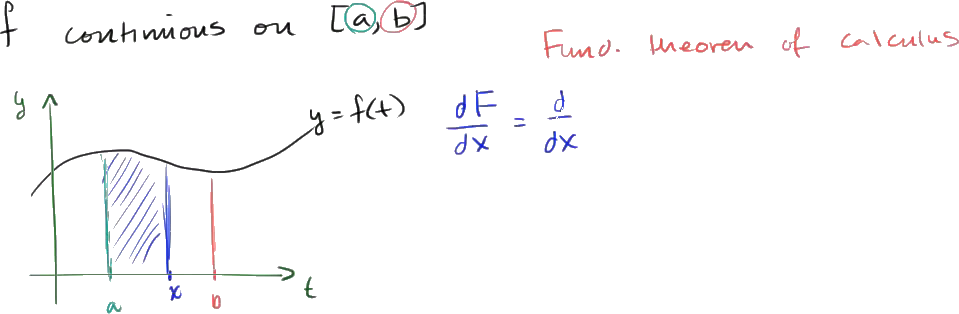 f continious on [a, b]
Fund. theorem of calculus
y
y = f(t)
dF/dx = d/dx
a
x
b
t